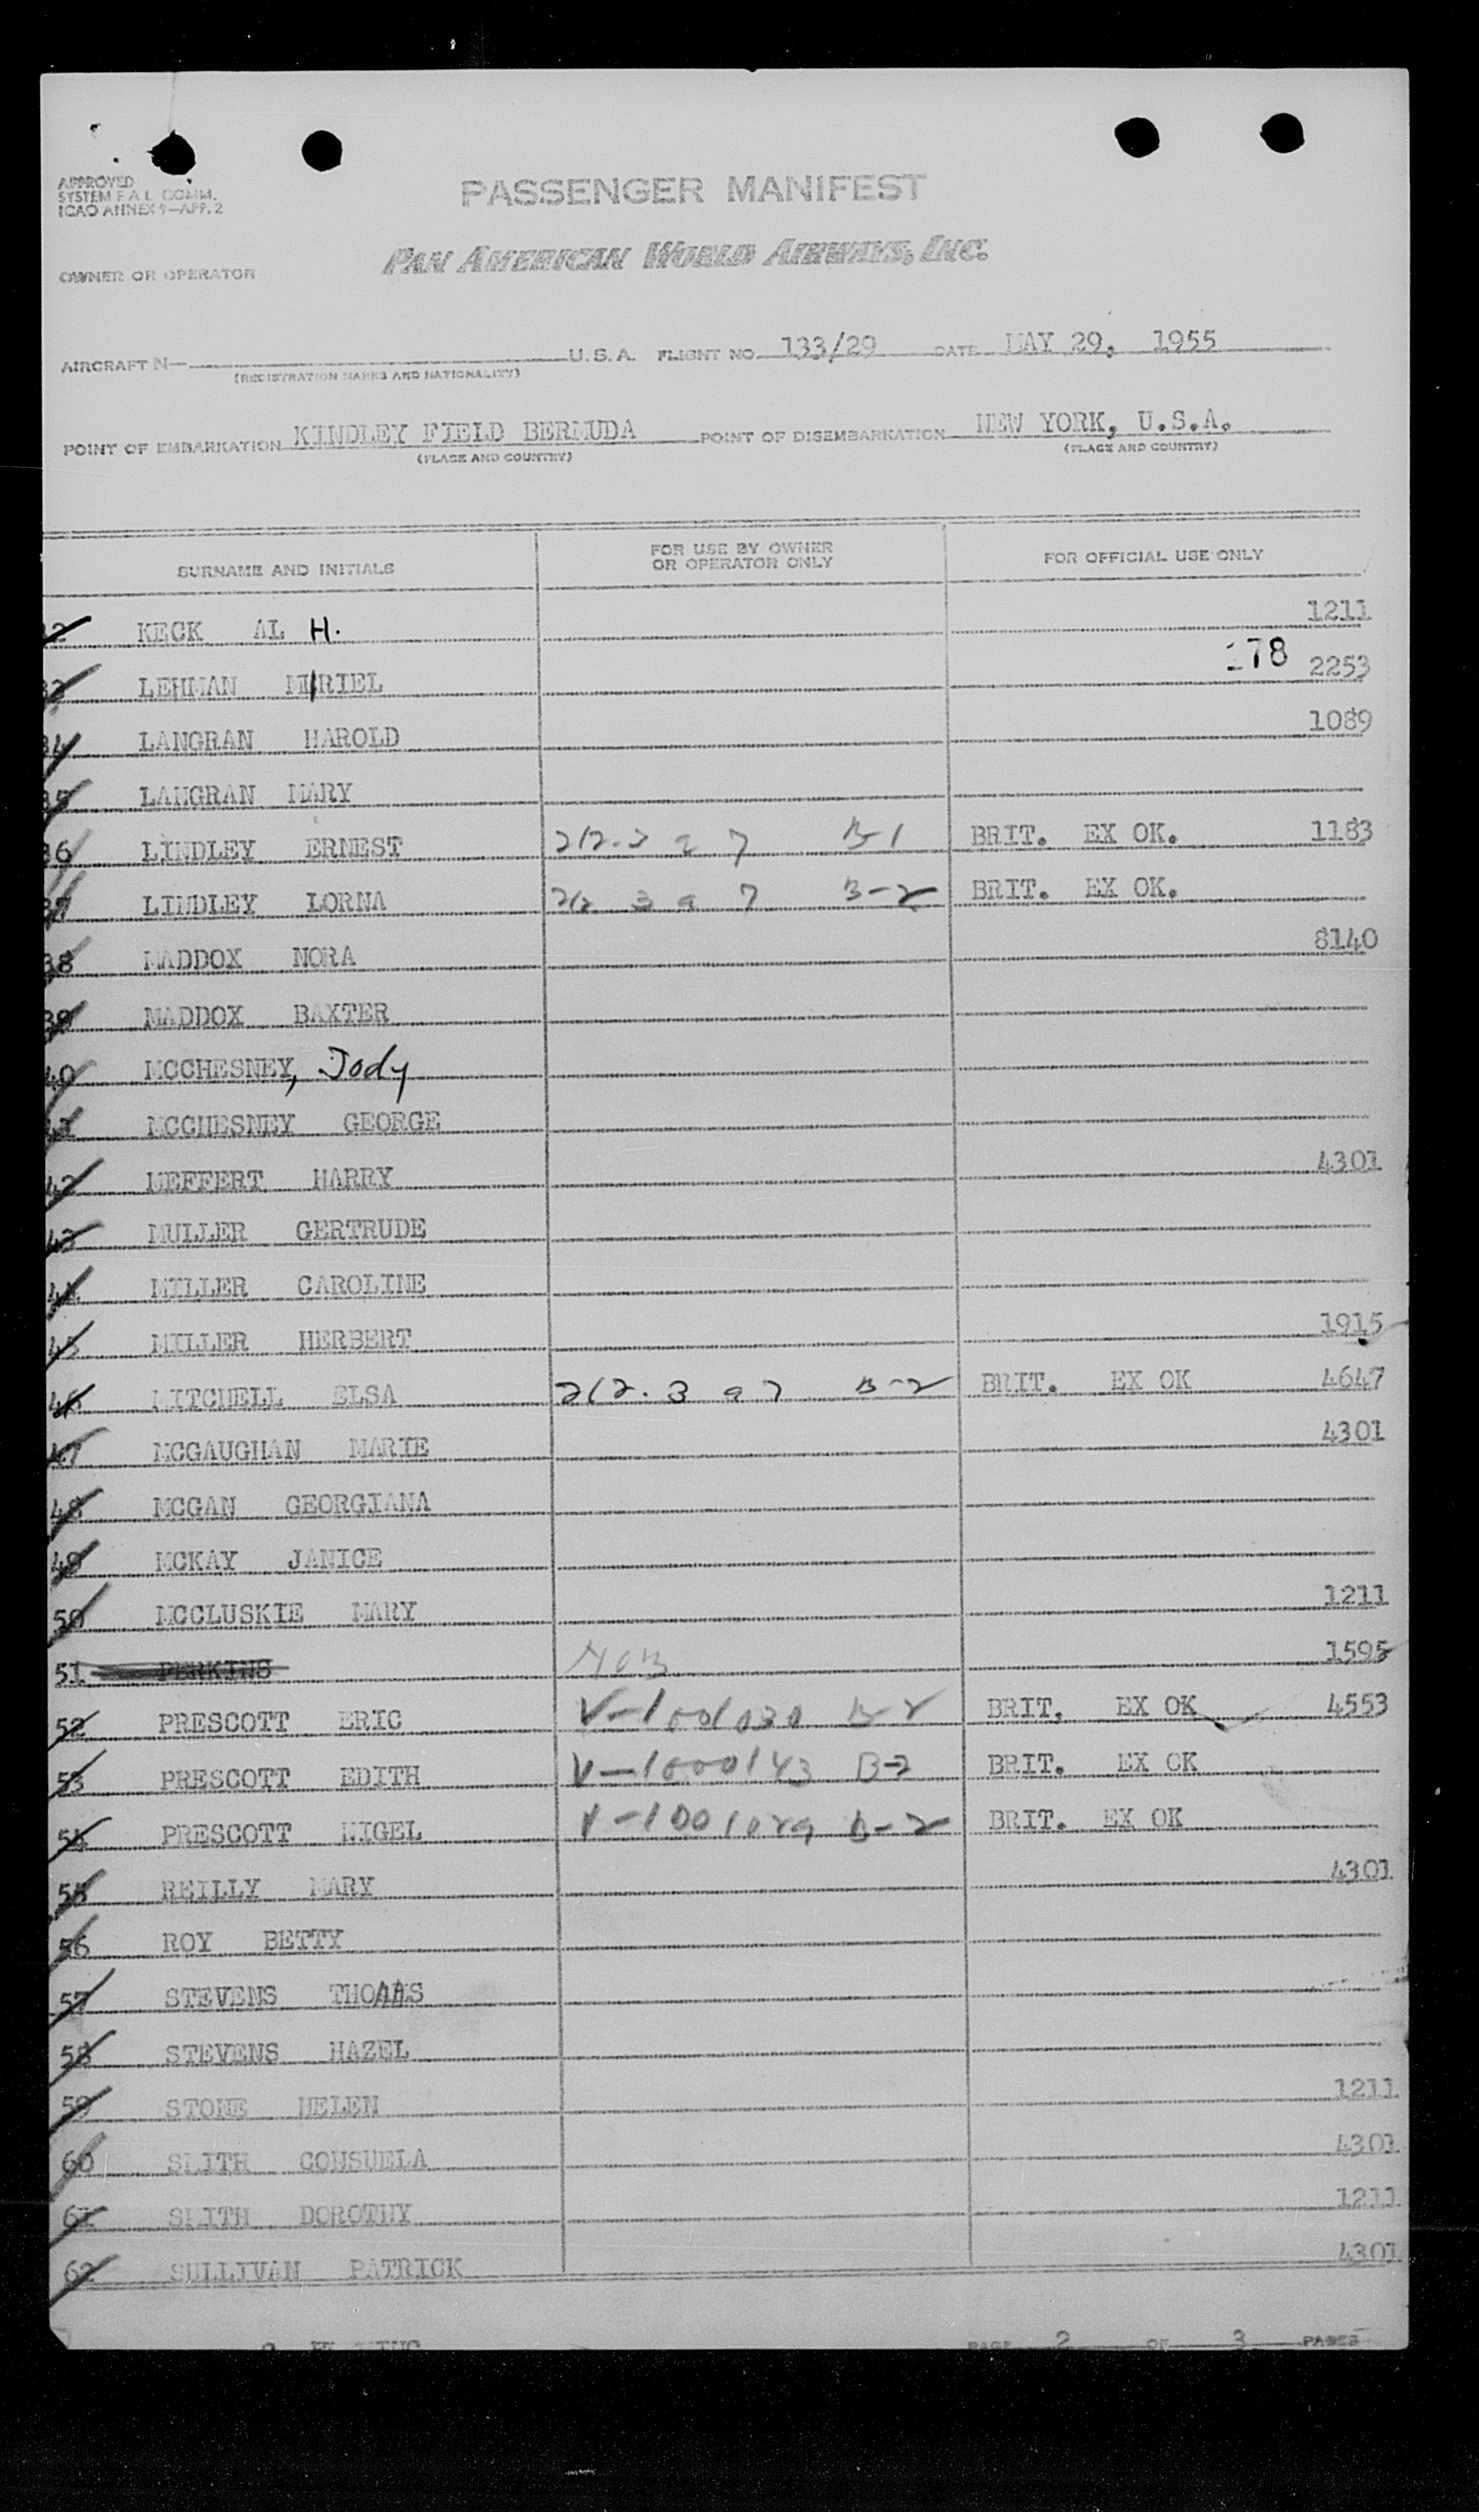 APPROVED
SYSTEM F A L COMM.
ICAO ANNEX 9—APP. 2
PASSENGER MANIFEST
OWNER OR OPERATOR PAN AMERICAN WORLD AIRWAYS, INC.
AIRCRAFT N— U.S.A. FLIGHT NO 133/29 DATE MAY 29, 1955
(REGISTRATION MARKS AND NATIONALITY)
POINT OF EMBARKATION KINDLEY FIELD BERMUDA POINT OF DISEMBARKATION NEW YORK, U.S.A.
(PLACE AND COUNTRY) (PLACE AND COUNTRY)
SURNAME AND INITIALS FOR USE BY OWNER OR OPERATOR ONLY FOR OFFICIAL USE ONLY
32 KECK AL H. 1211
178
33 LEHMAN MURIEL 2253
34 LANGRAN HAROLD 1089
35 LANGRAN MARY
36 LINDLEY ERNEST 212.3 a 7 B-1 BRIT. EX OK. 1183
37 LINDLEY LORNA 212 3 a 7 B-2 BRIT. EX OK.
38 MADDOX NORA 8140
39 MADDOX BAXTER
40 MCCHESNEY, Jody
41 MCCHESNEY GEORGE
42 MEFFERT HARRY 4301
43 MULLER GERTRUDE
44 MILLER CAROLINE
45 MILLER HERBERT 1915
46 MITCHELL ELSA 212.3 a 7 B-2 BRIT. EX OK 4647
47 MCGAUGHAN MARIE 4301
48 MCGAN GEORGIANA
49 MCKAY JANICE
50 MCCLUSKIE MARY 1211
51 PERKINS NOB 1595
52 PRESCOTT ERIC V-1001030 B-2 BRIT, EX OK 4553
53 PRESCOTT EDITH V-1000143 B-2 BRIT. EX OK
54 PRESCOTT NIGEL V-1001029 B-2 BRIT. EX OK
55 REILLY MARY 4301
56 ROY BETTY
57 STEVENS THOMAS
58 STEVENS HAZEL
59 STONE HELEN 1211
60 SMITH CONSUELA 4301
61 SMITH DOROTHY 1211
62 SULLIVAN PATRICK 4301
PAGE 2 OF 3 PAGES